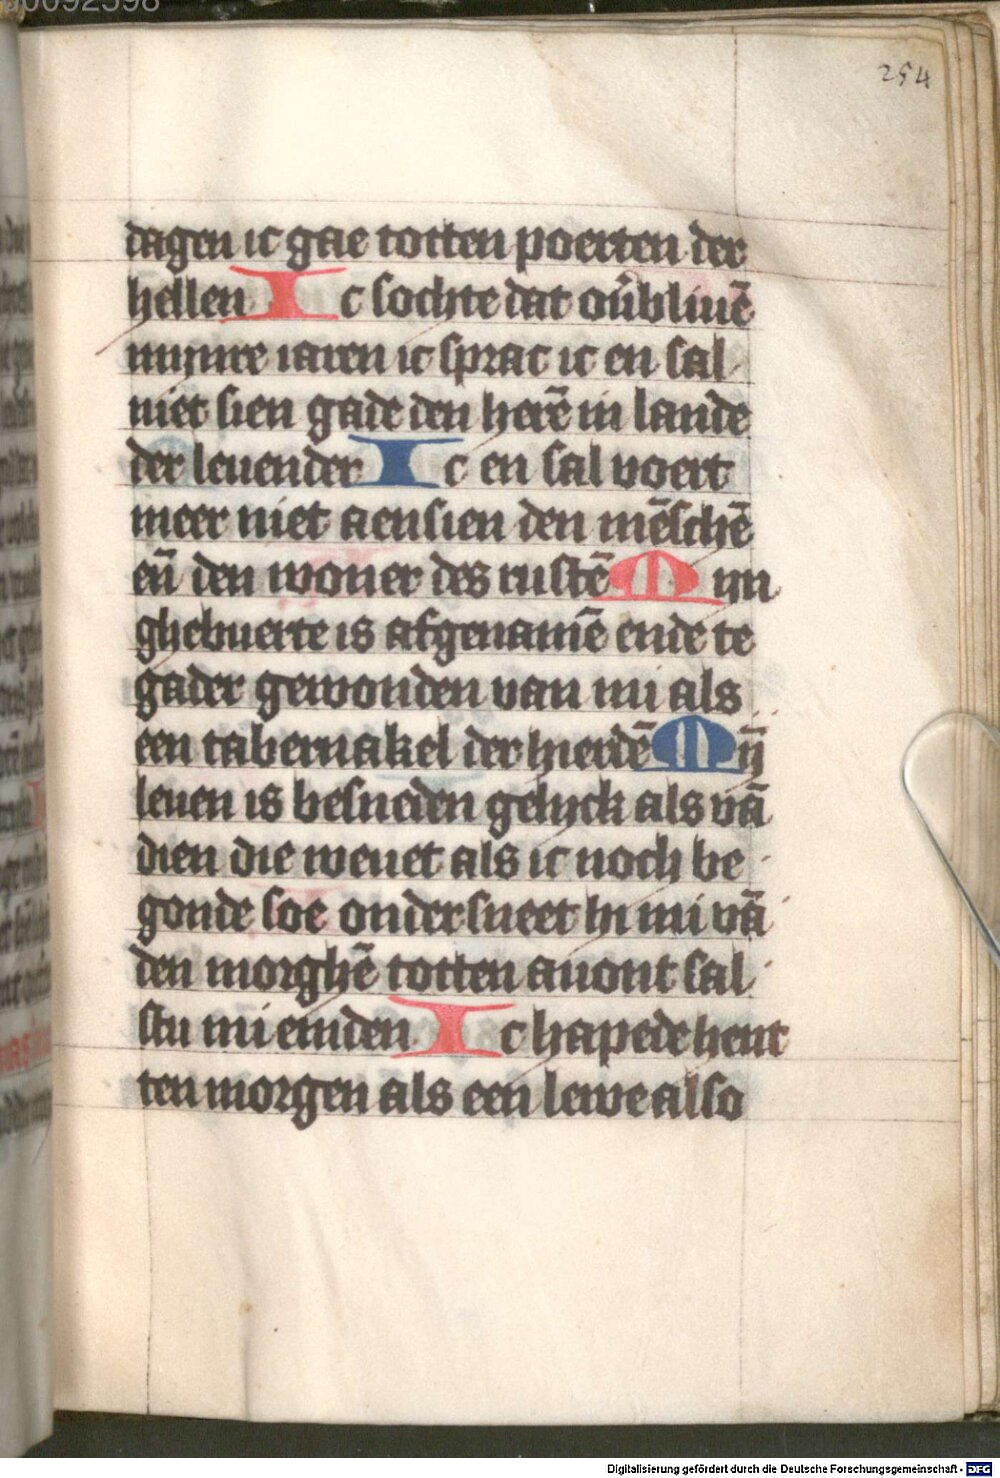 254
dagen ic gae totten poerten der
hellen Ic sochte dat ou̅bliue̅
mijnre iaren ic sprac ic en sal
niet sien gade den here̅ in lande
der leuender Ic en sal voert
meer niet aensien den me̅sche̅
en̅ den woner des ruste̅ Mijn
ghebuerte is afgename̅ ende te
gader gewonden van mi als
een tabernakel der hierde̅ Mij̅
leuen is besneden gelijck als va̅
dien die weuet als ic noch be
gonde soe ondersneet hi mi va̅
den morghe̅ totten auont sal
stu mi einden Ic hapede hent
ten morgen als een lewe also
Digitalisierung gefördert durch die Deutsche Forschungsgemeinschaft - DFG